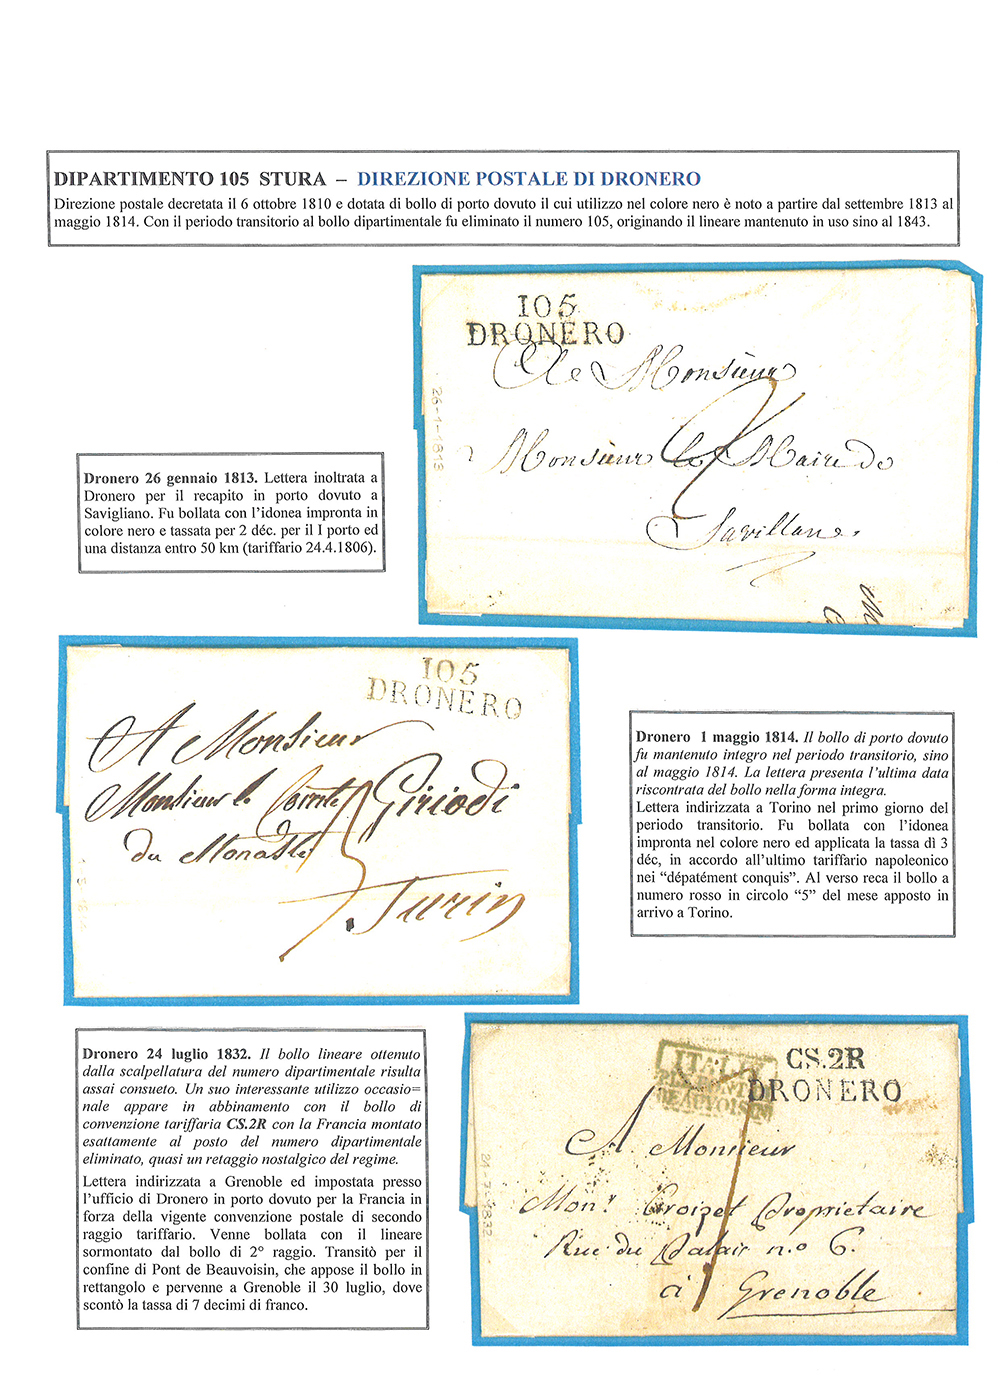 DIPARTIMENTO 105 STURA – DIREZIONE POSTALE DI DRONERO
Direzione postale decretata il 6 ottobre 1810 e dotata di bollo di porto dovuto il cui utilizzo nel colore nero è noto a partire dal settembre 1813 al
maggio 1814. Con il periodo transitorio al bollo dipartimentale fu eliminato il numero 105, originando il lineare mantenuto in uso sino al 1843.
105
DRONERO
A Monsieur
Monsieur le Maire de
Savillan.
26-1-1813
Dronero 26 gennaio 1813. Lettera inoltrata a
Dronero per il recapito in porto dovuto a
Savigliano. Fu bollata con l'idonea impronta in
colore nero e tassata per 2 déc. per il I porto ed
una distanza entro 50 km (tariffario 24.4.1806).
105
DRONERO
A Monsieur
Monsieur le Comte Giriodi
du Monastè
Turin
Dronero 1 maggio 1814. Il bollo di porto dovuto
fu mantenuto integro nel periodo transitorio, sino
al maggio 1814. La lettera presenta l'ultima data
riscontrata del bollo nella forma integra.
Lettera indirizzata a Torino nel primo giorno del
periodo transitorio. Fu bollata con l'idonea
impronta nel colore nero ed applicata la tassa dì 3
déc, in accordo all'ultimo tariffario napoleonico
nei “dépatément conquis”. Al verso reca il bollo a
numero rosso in circolo “5” del mese apposto in
arrivo a Torino.
Dronero 24 luglio 1832. Il bollo lineare ottenuto
dalla scalpellatura del numero dipartimentale risulta
assai consueto. Un suo interessante utilizzo occasio=
nale appare in abbinamento con il bollo di
convenzione tariffaria CS.2R con la Francia montato
esattamente al posto del numero dipartimentale
eliminato, quasi un retaggio nostalgico del regime.
Lettera indirizzata a Grenoble ed impostata presso
l'ufficio di Dronero in porto dovuto per la Francia in
forza della vigente convenzione postale di secondo
raggio tariffario. Venne bollata con il lineare
sormontato dal bollo di 2° raggio. Transitò per il
confine di Pont de Beauvoisin, che appose il bollo in
rettangolo e pervenne a Grenoble il 30 luglio, dove
scontò la tassa di 7 decimi di franco.
ITALIE
BEAUVOISIN
CS.2R
DRONERO
A Monsieur
Monr Croizet Propriétaire
Rue du Palais n.o 6.
à Grenoble
24-7-1832